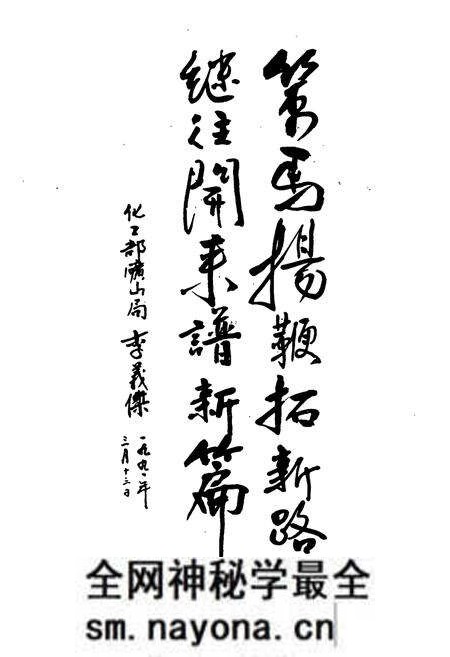 策馬揚鞭拓新路
继往開来譜新篇
化工部矿山局 李義傑
一九九一年
三月十三日
全网神秘学最全
sm.nayona.cn